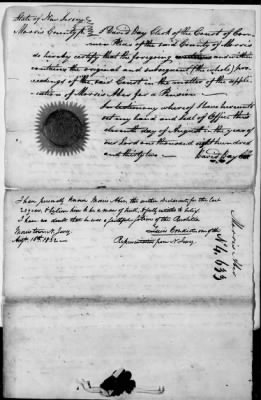 State of New Jersey
Morris County ss I David Day Clerk of the Court of Com
mon Pleas of the said County of Morris
do hereby certify that the foregoing and within
contains the original and subsequent (the whole) pro
ceedings of the said Court in the matter of the appli
cation of Morris Aber for a Pension.
In testimony whereof I have hereunto
set my hand and seal of Office this
eleventh day of August in the year of
our Lord one thousand eight hundred
and thirty two
David Day Clk
I have personally known Morris Aber, the within declarant for the last
years, & believe him to be a man of truth, & fully entitled to belief.
I have no doubt that he was a faithful soldier of the Revolution
Morristown N. Jersey
Augt. 18th. 1832
Lewis Condict
Representative from N Jersey
Morris Aber
No 4,633